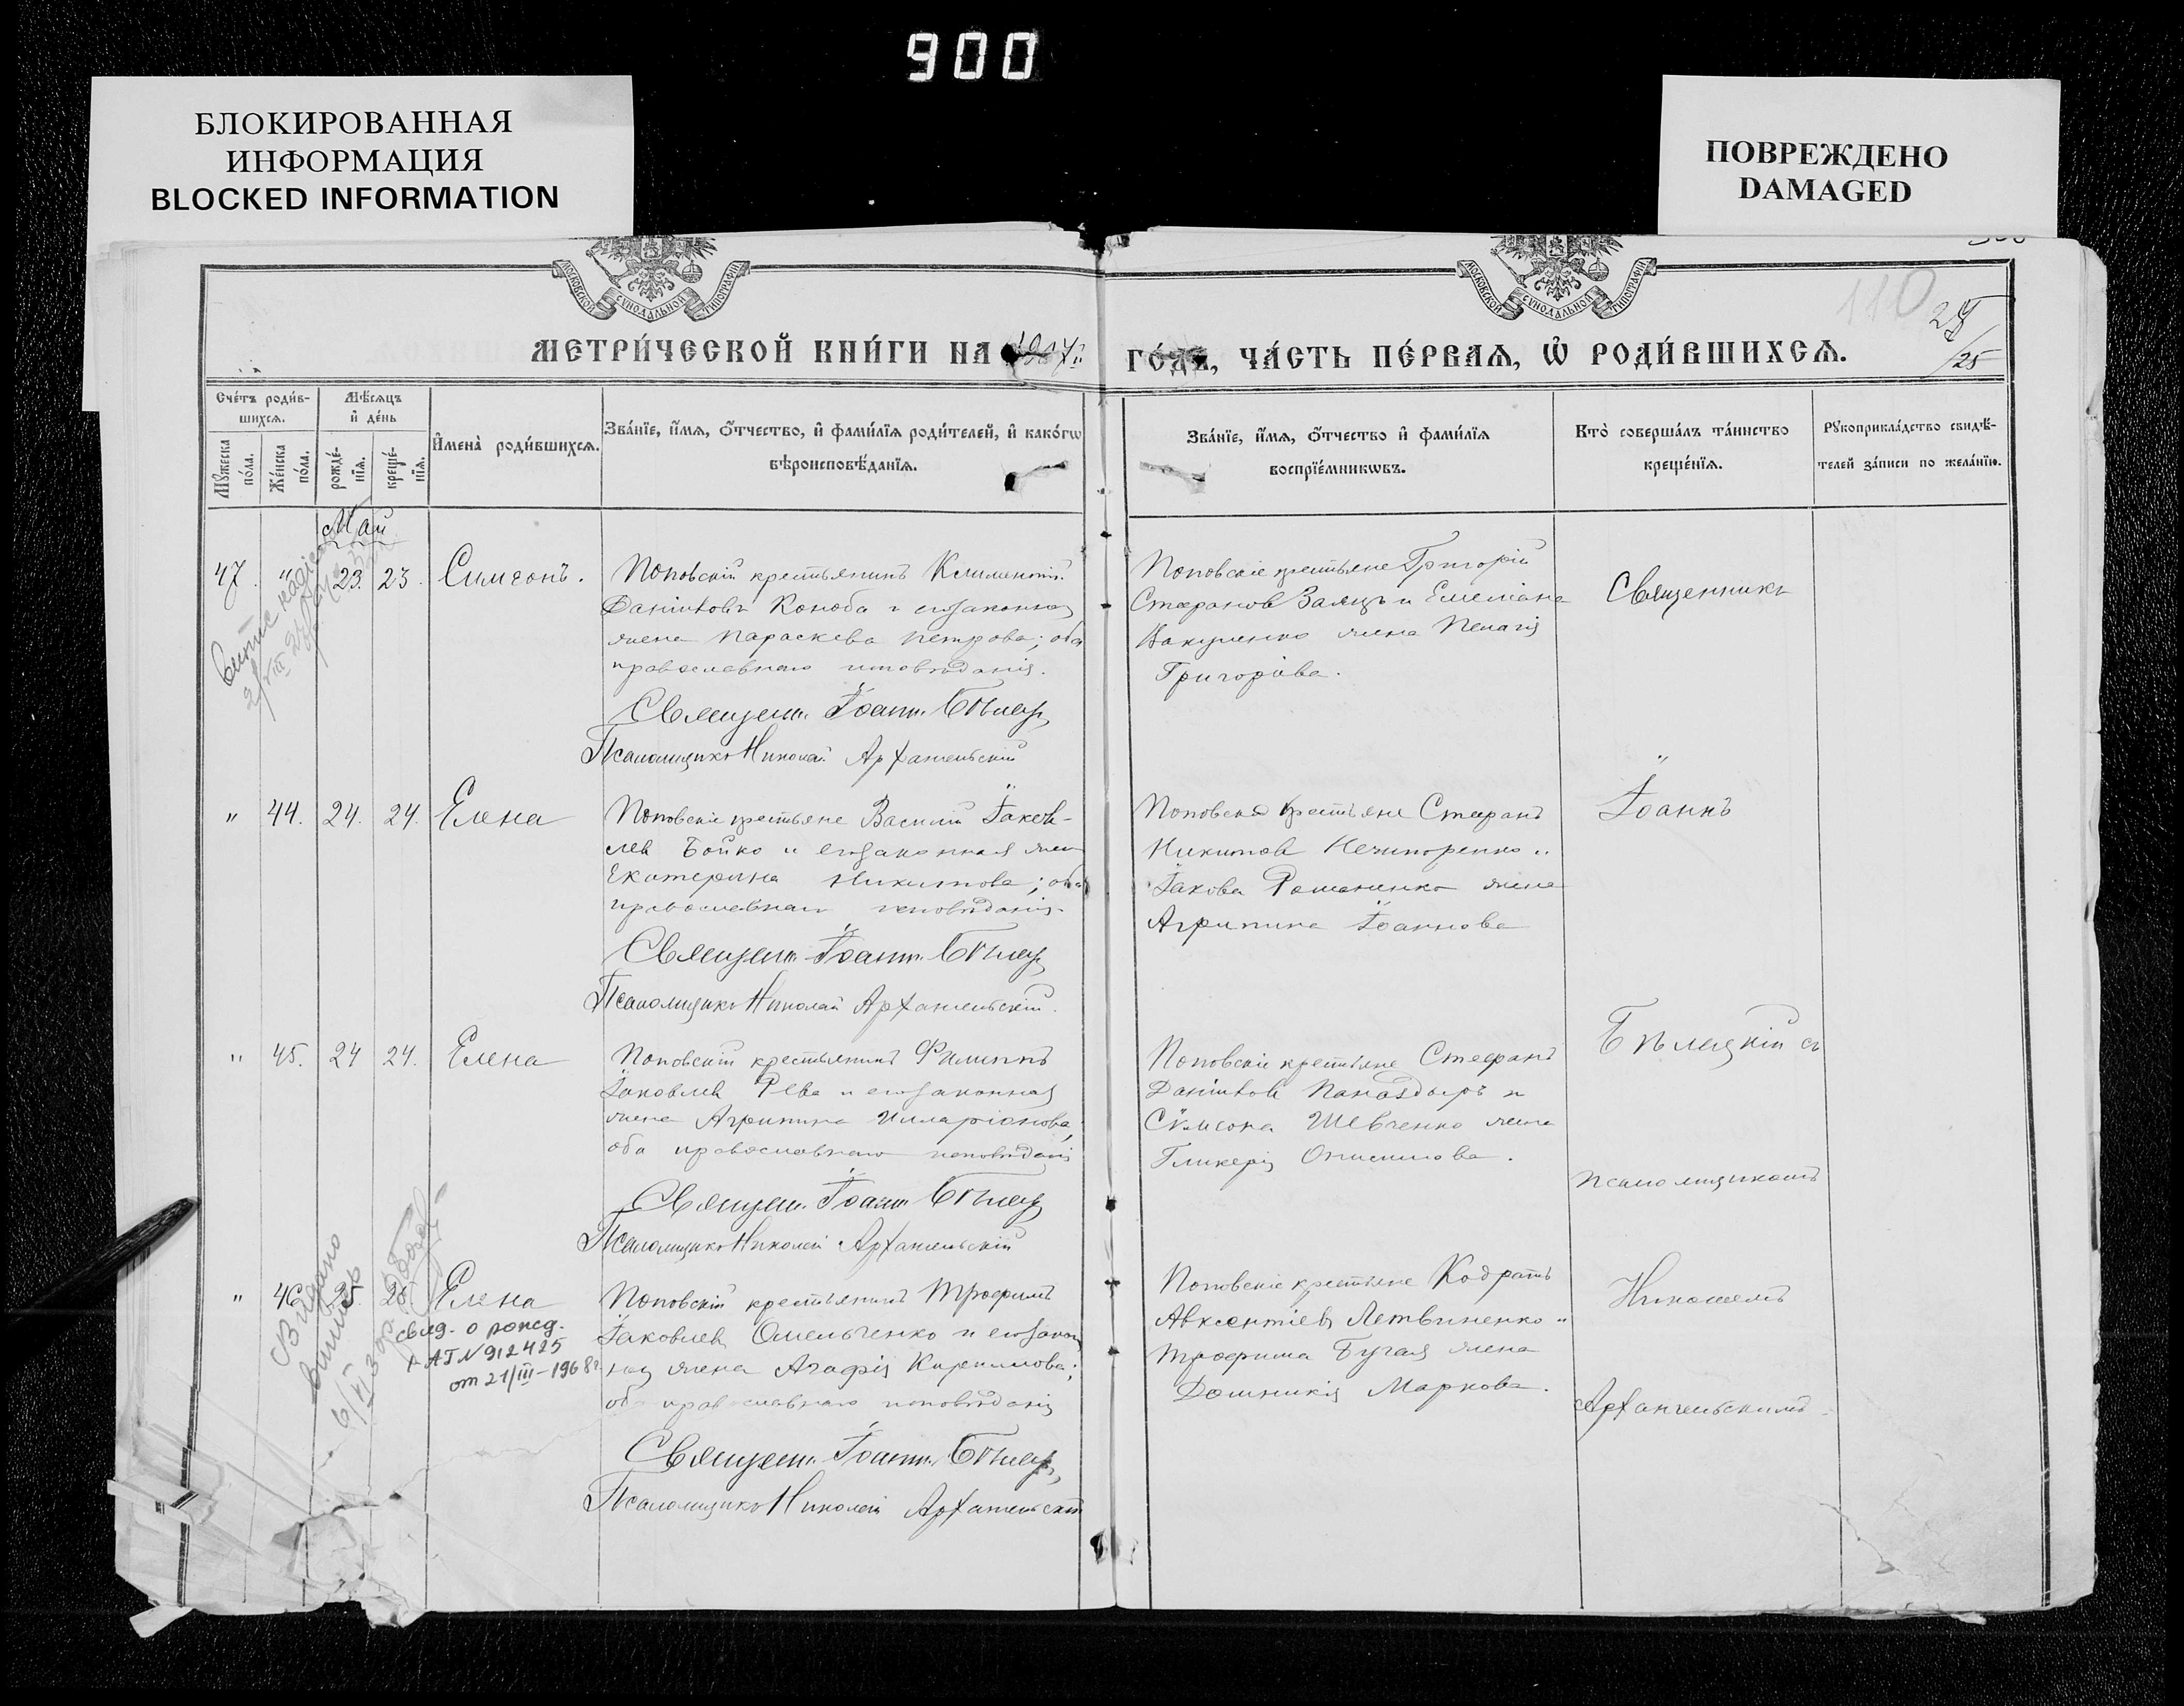 900
БЛОКИРОВАННАЯ
ИНФОРМАЦИЯ
BLOCKED INFORMATION
ПОВРЕЖДЕНО
DAMAGED
МОСКОВСКОЙ СѴНОДАЛЬНОЙ ТИПОГРАФІИ
МОСКОВСКОЙ СѴНОДАЛЬНОЙ ТИПОГРАФІИ
110
25
МЕТРИ́ЧЕСКОЙ КНИ́ГИ НА
ГО́ДЪ, ЧА́СТЬ ПЕ́РВАѦ, Ѡ҆ РОДИ́ВШИХСѦ.
Сче́тъ роди́в-
шихсѧ.
Мꙋ́жеска по́ла.
Же́нска по́ла.
Мѣ́сѧцъ
и҆ де́нь
рожде́-нїѧ.
креще́-нїѧ.
И҆мена̀ роди́вшихсѧ.
Зва́нїе, и҆́мѧ, ѻ҆́тчество, и҆ фами́лїѧ роди́телей, и҆ како́гѡ
вѣроисповѣ́данїѧ.
Зва́нїе, и҆́мѧ, ѻ҆́тчество и҆ фами́лїѧ
воспрїе́мникѡвъ.
Кто̀ соверша́лъ та́инство
креще́нїѧ.
Рꙋкоприкла́дство свидѣ́-
телей за́писи по жела́нїю.
Май
47. " 23. 23. Симеонъ.
Поповскій крестьянинъ Климентій
Даніиловъ Коноба и его законная
жена Параскева Петрова; оба
православнаго исповѣданія.
Священ. Іоанн. Бѣлец
Псаломщикъ Николай Архангельскій
Поповскіе крестьяне Григорій
Стефановъ Заяцъ и Емеліана
Вакуленко жена Пелагія
Григорьева.
Священникъ
" 44. 24. 24. Елена
Поповскіе крестьяне Василій Іаков-
лев Бойко и его законная жен
Екатерина Никитова; оба
православнаго исповѣданія.
Священ. Іоанн. Бѣлец
Псаломщикъ Николай Архангельскій.
Поповскіе крестьяне Стефанъ
Никитовъ Нечипоренко и
Іакова Романенко жена
Агрипина Іоаннова
Іоаннъ
" 45. 24 24. Елена
Поповскій крестьянинъ Филиппъ
Іаковлев Рева и его законная
жена Агрипина Илларіонова,
оба православнаго исповѣданія
Священ. Іоанн. Бѣлец
Псаломщикъ Николай Архангельскій
Поповскіе крестьяне Стефанъ
Даніиловъ и
Симеона Шевченко жена
Гликерія Онисимова.
Бѣлецкій съ
псаломщикомъ
" 46. 25. Елена
Видано
свид. о рожд.
N 912425
от 21/III-1968г.
Поповскій крестьянинъ Трофимъ
Іаковлев Омельченко и его закон
ная жена Агафія Кирилова;
оба православнаго исповѣданія
Священ. Іоанн. Бѣлец
Псаломщикъ Николай Архангельскій
Поповскіе крестьяне Кодратъ
Авксентіевъ Летвиненко и
Трофима Бугая жена
Домникія Маркова.
Николаемъ
Архангельскимъ.